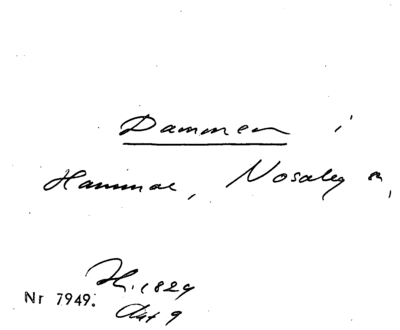 Dammen i
Hammar, Nosaby s,
H. 1829
Nr 7949.
Akt 9